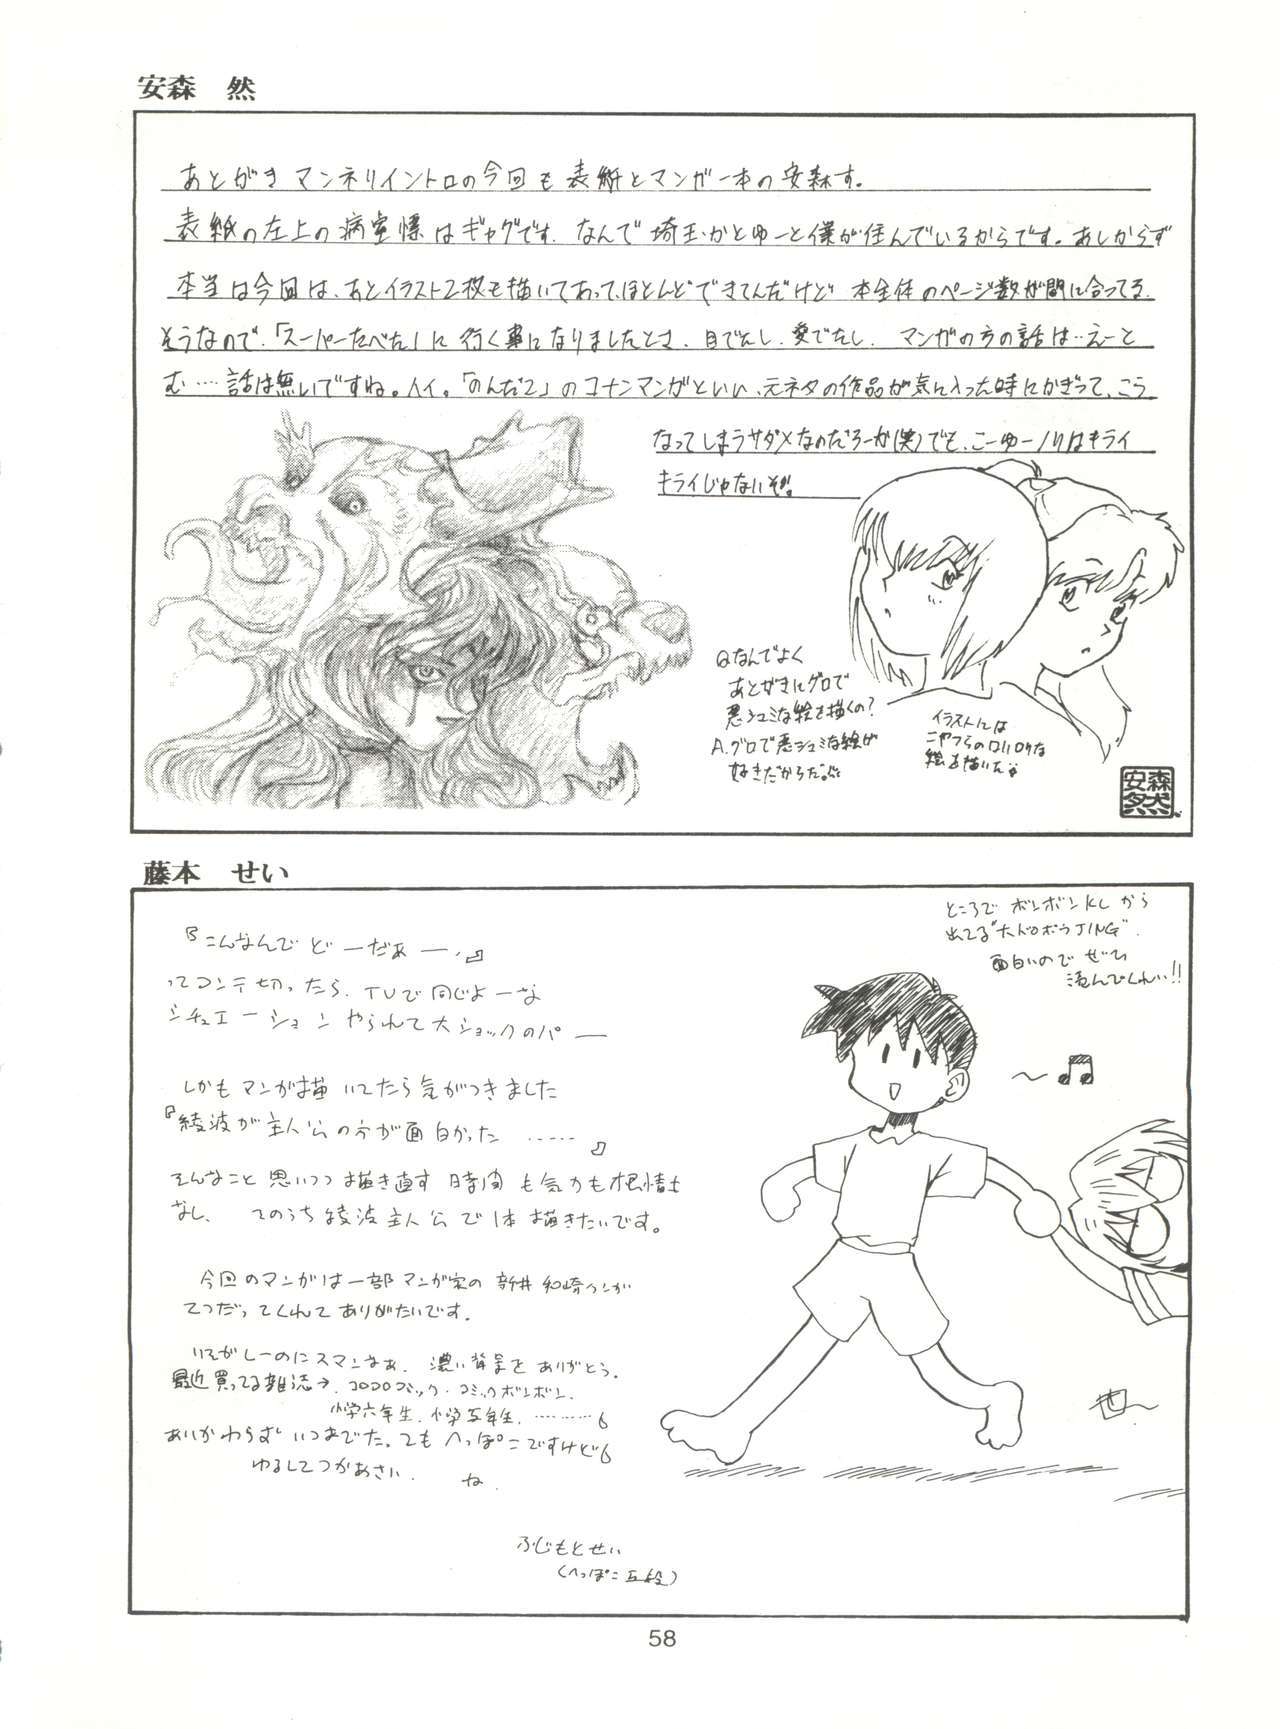 安森　然
あとがき マンネリイントロの今回も 表紙とマンガ一本の安森す。
表紙の左上の病室標はギャグです. なんで 埼玉かとゆーと僕が住んでいるからです。あしからず
本当は今回は、あとイラスト2枚も描いてあって、ほとんどできてんだけど 本全体のページ数が間に合ってる.
そうなので、「スーパーたべた」に 行く事になりましたとさ. 目でたし. 愛でたし. マンガの方の話は…えーと
む……話は無いですね。ハイ。「のんだ2」のコナンマンガといい、元ネタの作品が気に入った時にかぎって、こう
なってしまうサダメなのだろーか(笑)でも、こーゆーノリはキライ
キライじゃないぞ!。
Qなんでよく
あとがきにグロで
悪シュミな絵を描くの?
A.グロで悪シュミな絵が
好きだからだ。
イラストには
こやつらの
絵も描いた
安森然
藤本　せい
ところで ボンボンKC から
出てる"大ドロボウJING".
面白いので ぜひ
読んでくれい!!
『こんなんで どーだぁー.』
ってコンテ切ったら、TVで同じよーな
シチュエーション やられて大ショックのパー
しかもマンガ描いてたら気がつきました
『綾波が主人公の方が面白かった ……』
そんなこと思いつつ描き直す時間も気力も根情も
なし、 そのうち綾波主人公で1本描きたいです。
今回のマンガは一部マンガ家の 新井 和崎クンが
てつだってくれて ありがたいです。
いそがしーのにスマンなぁ. 濃い背景を ありがとう.
最近買ってる雑誌→. コロコロコミック・コミックボンボン.
小学六年生. 小学五年生. ………6
あいかわらず いつまでた。ても へっぽこですけど6
ゆるしてつかあさい. ね.
ふじもとせい
(へっぽこ五段)
58